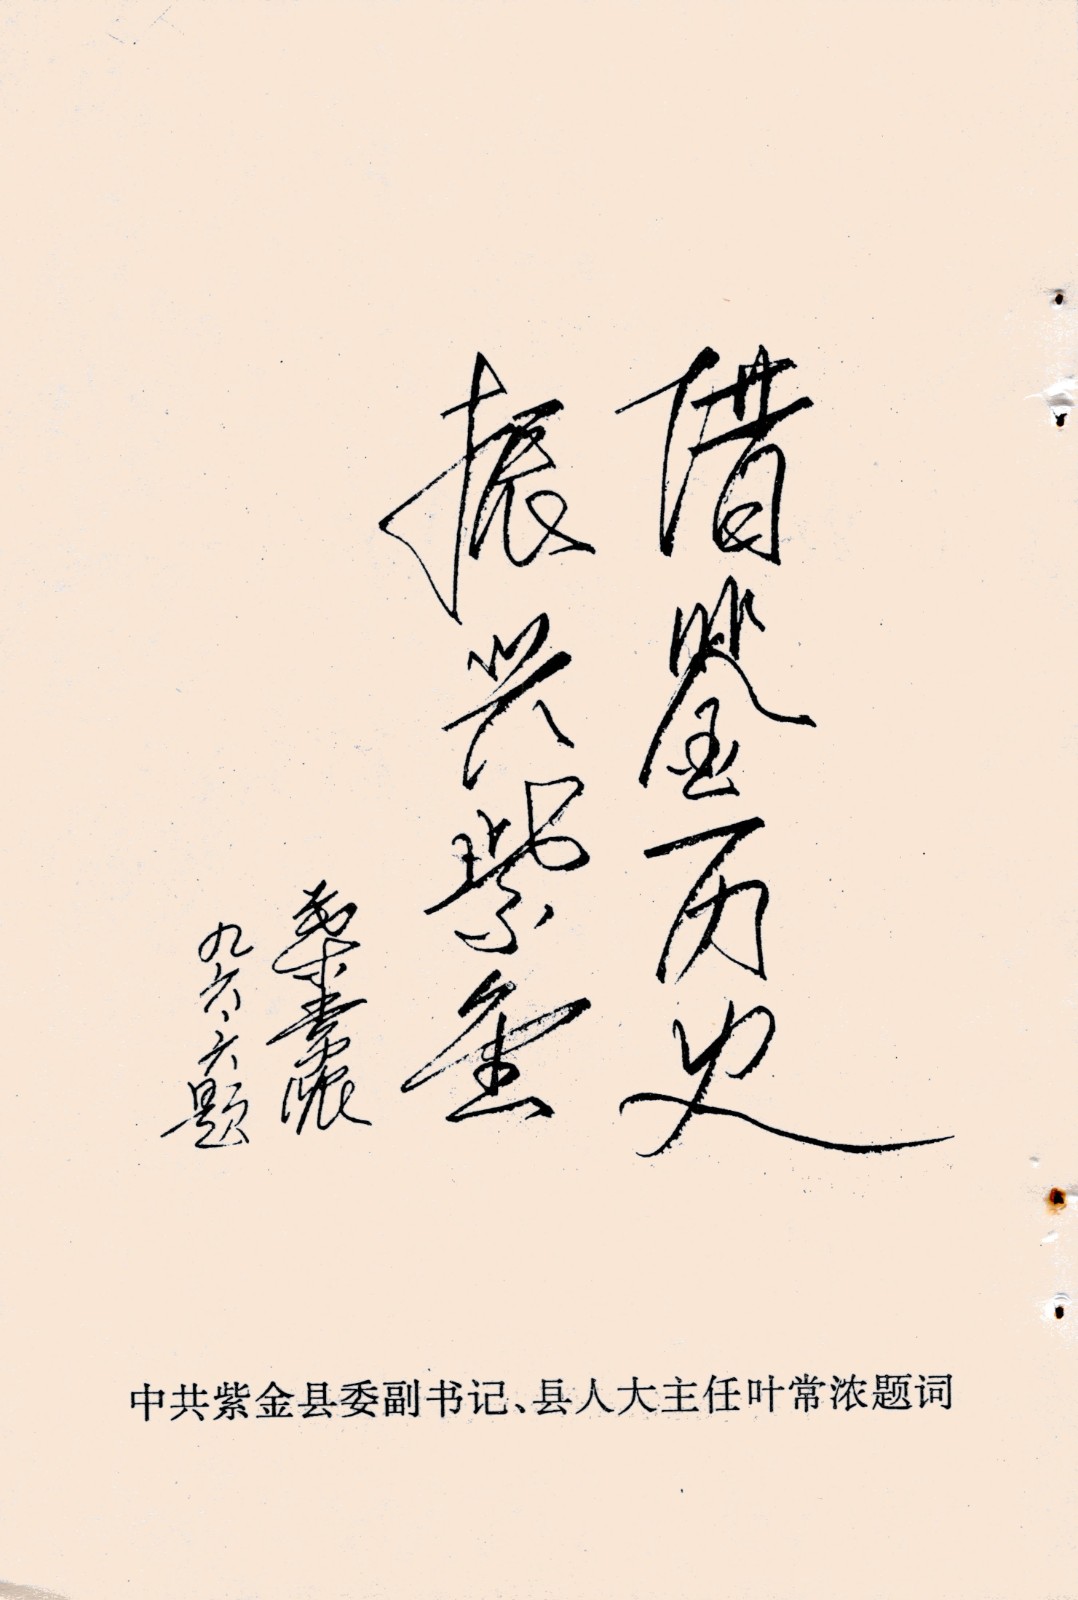 借鉴历史
振兴紫金
葉常浓
九六、六题
中共紫金县委副书记、县人大主任叶常浓题词